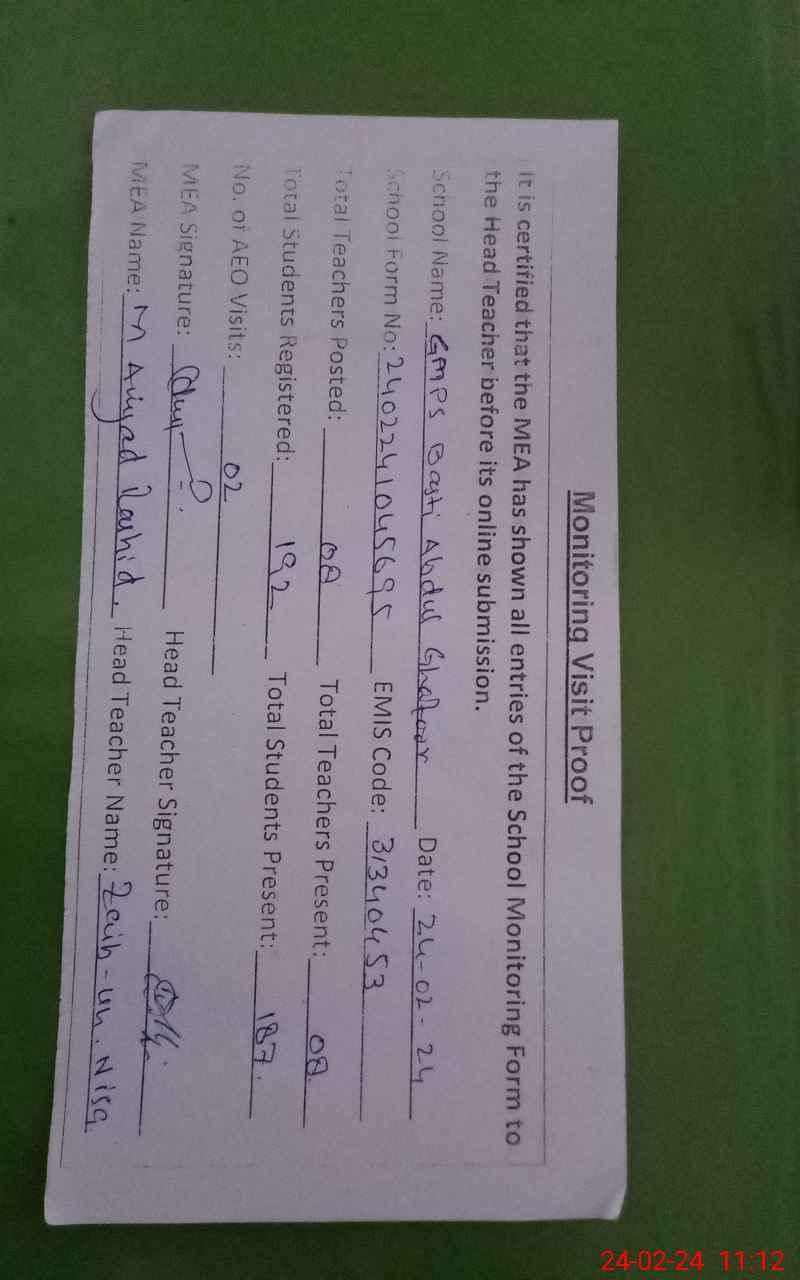 Monitoring Visit Proof
It is certified that the MEA has shown all entries of the School Monitoring Form to
the Head Teacher before its online submission.
School Name: GMPS Basti Abdul Ghafoor Date: 24-02-24
School Form No: 2402241045695 EMIS Code: 31340453
Total Teachers Posted: 08 Total Teachers Present: 08
Total Students Registered: 192 Total Students Present: 187.
No. of AEO Visits: 02
MEA Signature: Head Teacher Signature:
MEA Name: M Amjad Rashid. Head Teacher Name: Zaib-un-Nisa
24-02-24 11:12